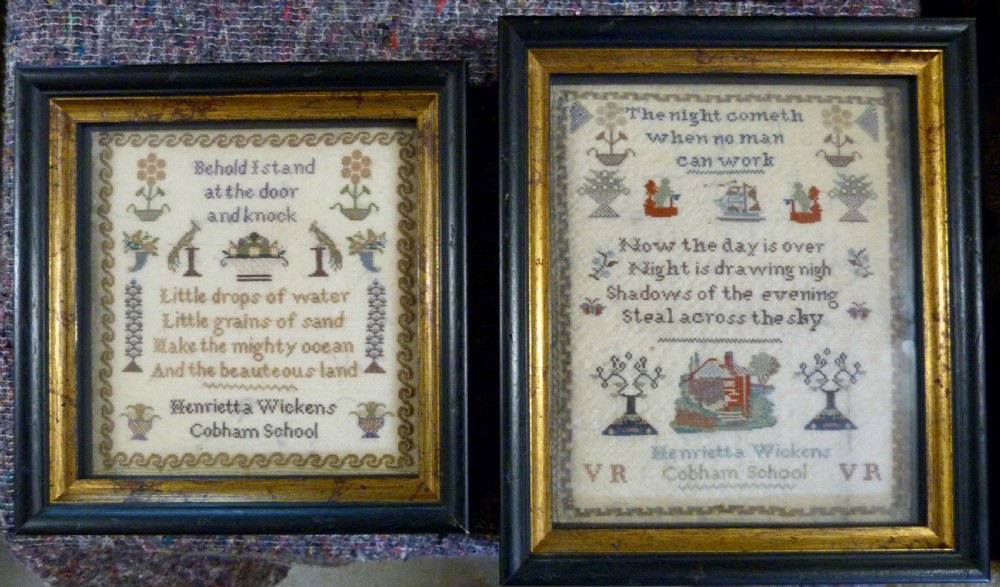 Behold I stand
at the door
and knock
Little drops of water
Little grains of sand
Make the mighty ocean
And the beauteous land
Henrietta Wickens
Cobham School
The night cometh
when no man
can work
Now the day is over
Night is drawing nigh
Shadows of the evening
Steal across the sky
Henrietta Wickens
V R Cobham School V R